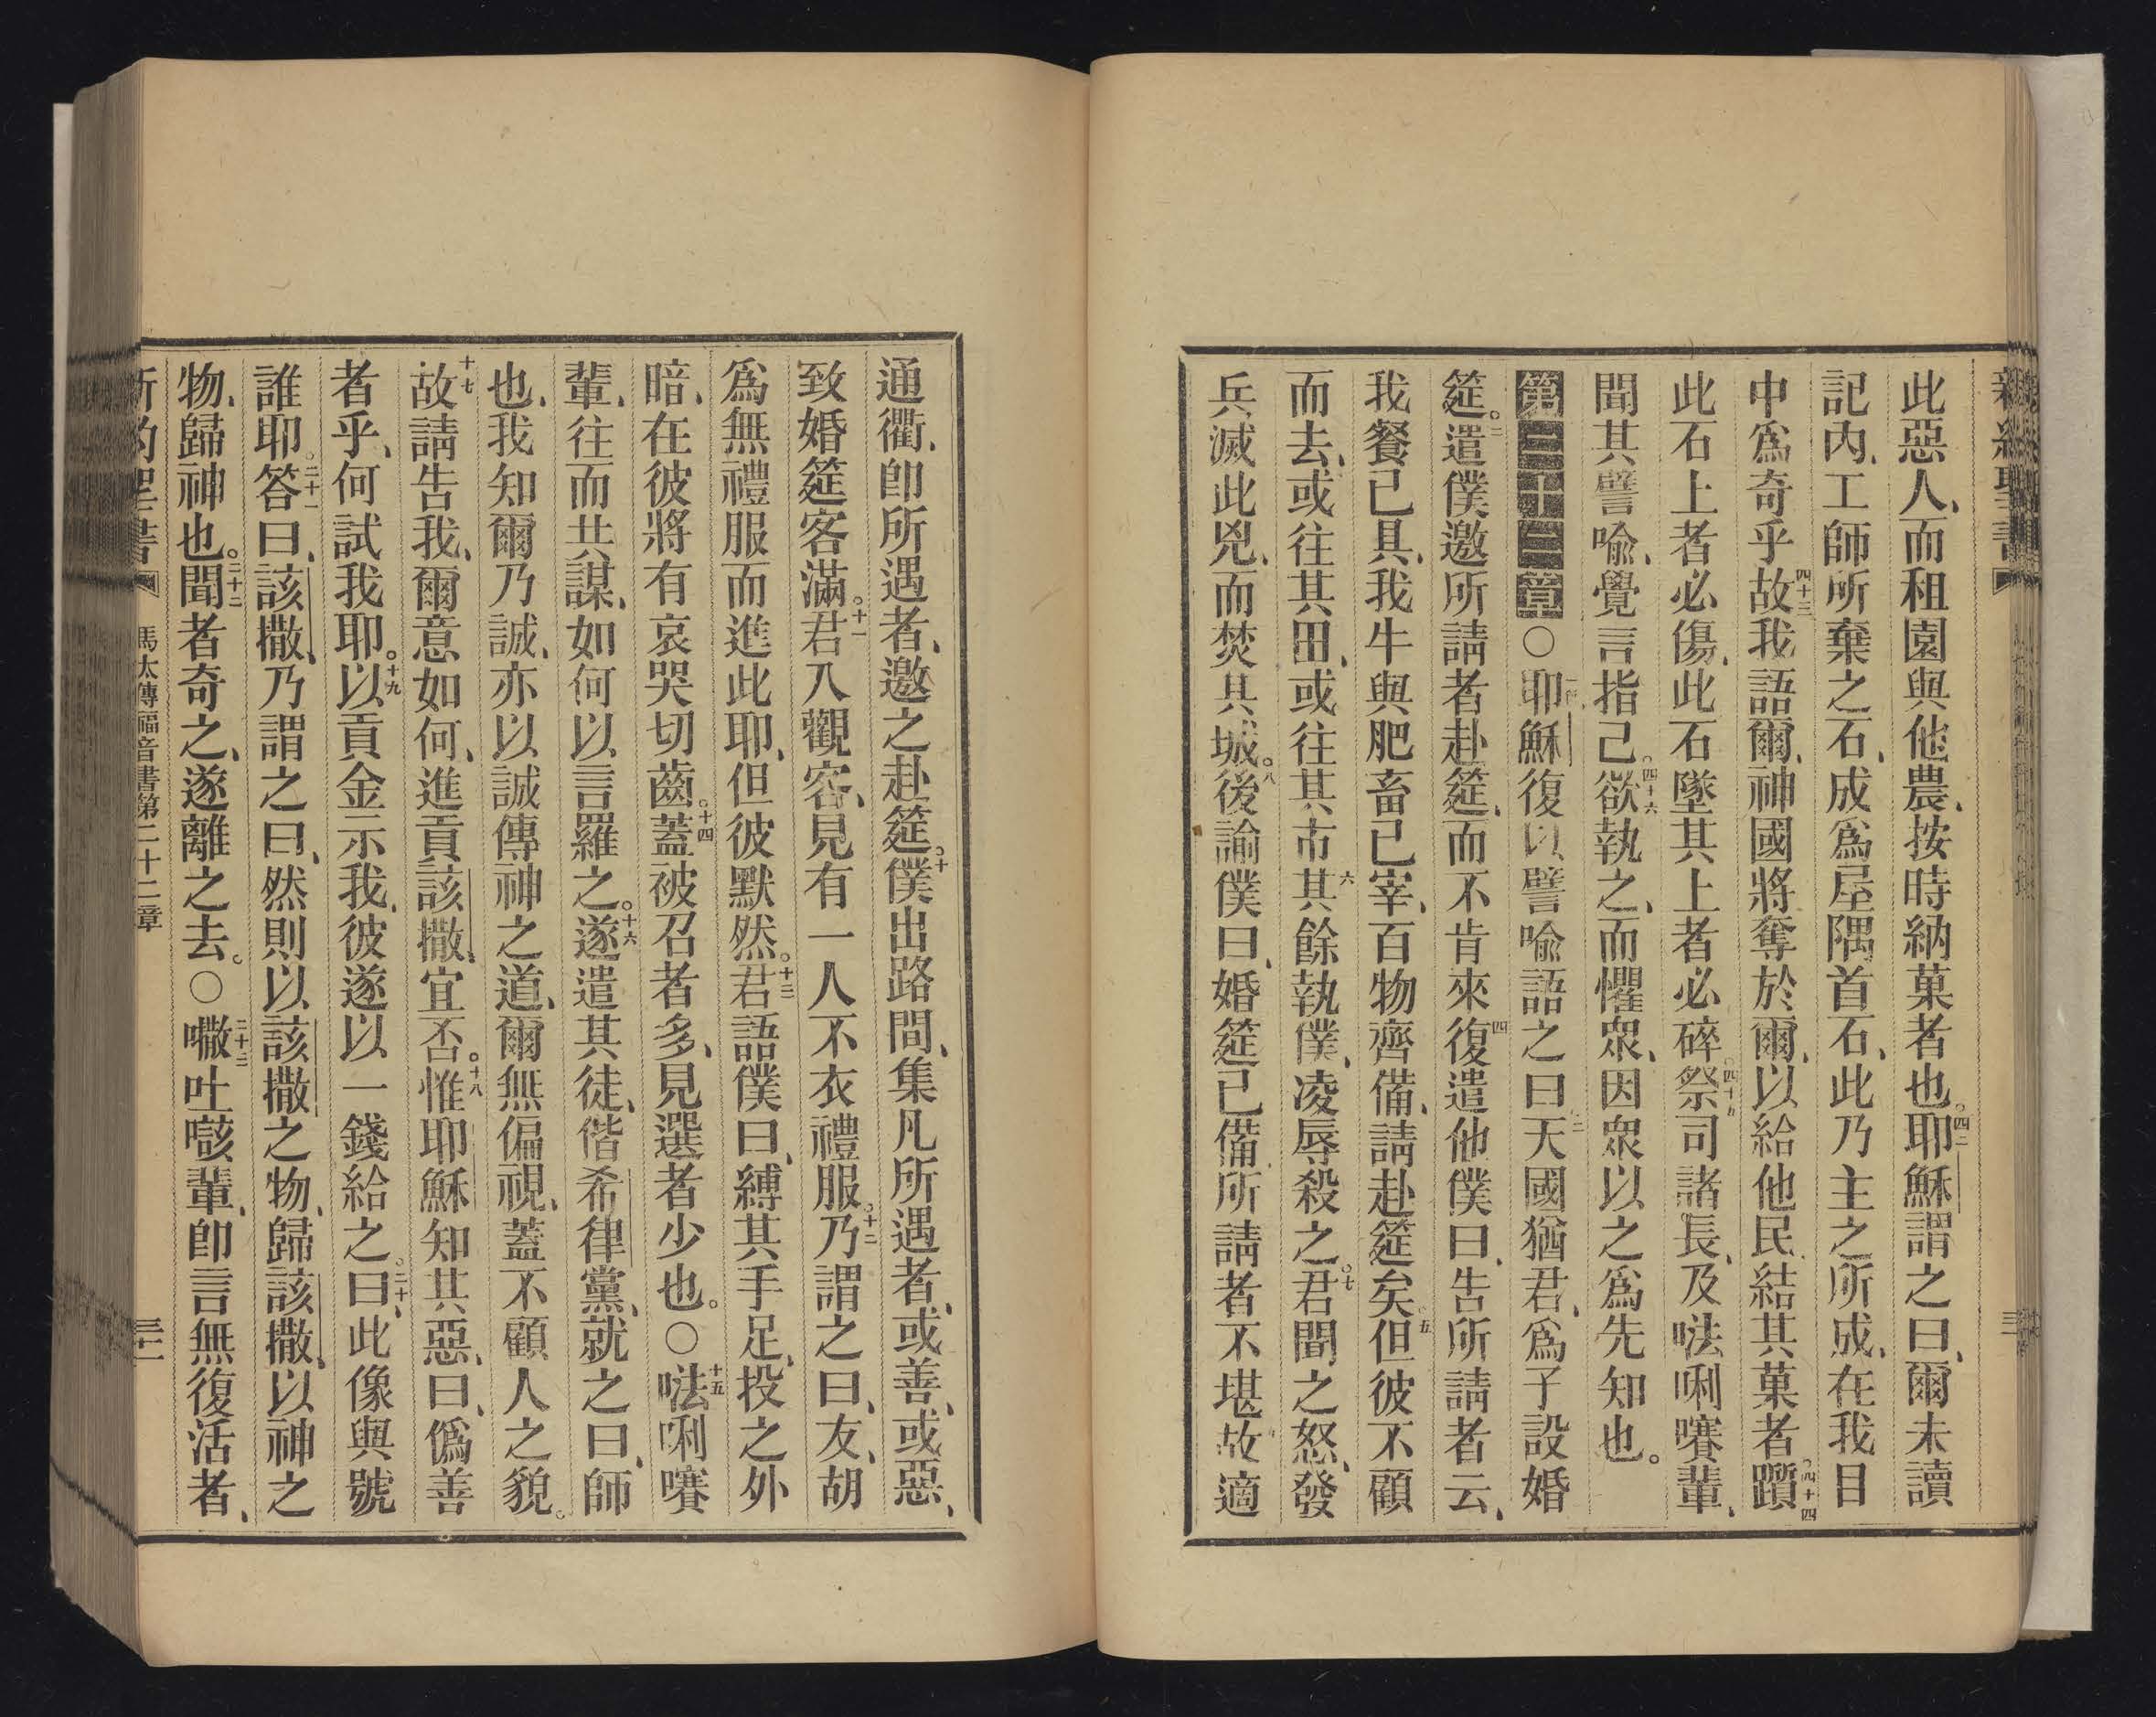 此惡人、而租園與他農、按時納菓者也。四二耶穌謂之曰、爾未讀
記內、工師所棄之石、成爲屋隅首石、此乃主之所成、在我目
中爲奇乎四十三故我語爾、神國將奪於爾、以給他民、結其菓者。四十四躓
此石上者必傷、此石墜其上者必碎。四十五祭司諸長、及㗎唎㘔輩、
聞其譬喩、覺言指己。四十六欲執之、而懼衆、因衆以之爲先知也。
第二十二章○一耶穌復以譬喩語之曰二天國猶君、爲子設婚
筵。三遣僕邀所請者赴筵、而不肯來四復遣他僕曰、告所請者云、
我餐已具、我牛與肥畜已宰、百物齊備、請赴筵矣。五但彼不顧
而去、或往其田、或往其市六其餘執僕、凌辱殺之。七君聞之怒、發
兵滅此兇、而焚其城。八後諭僕曰、婚筵已備、所請者不堪九故適
通衢、卽所遇者、邀之赴筵。十僕出路間、集凡所遇者、或善、或惡、
致婚筵客滿。十一君入觀客、見有一人不衣禮服。十二乃謂之曰、友、胡
爲無禮服而進此耶、但彼默然。十三君語僕曰、縛其手足、投之外
暗、在彼將有哀哭切齒。十四蓋被召者多、見選者少也。○十五㗎唎㘔
輩、往而共謀、如何以言羅之。十六遂遣其徒、偕希律黨、就之曰、師
也、我知爾乃誠、亦以誠傳神之道、爾無偏視、蓋不顧人之貌。
十七故請告我、爾意如何、進貢該撒、宜否。十八惟耶穌知其惡、曰、僞善
者乎、何試我耶。十九以貢金示我、彼遂以一錢給之。二十曰、此像與號
誰耶。二十一答曰、該撒、乃謂之曰、然則以該撒之物、歸該撒、以神之
物、歸神也。二十二聞者奇之、遂離之去。○二十三㘔吐㗎輩、卽言無復活者、
新約聖書 馬太傳福音書第二十二章 三十一